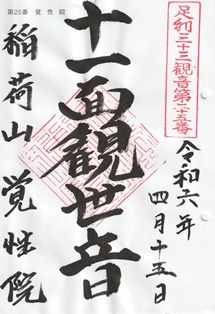 第25番 覚性院
足利三十三観音第二十五番
令和六年
四月十五日
十一面観世音
稲荷山覚性院